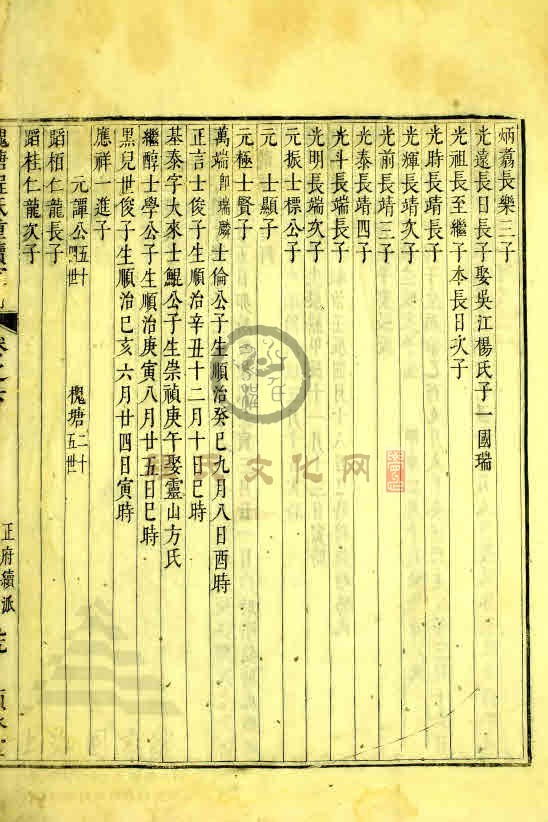 炳翥長樂三子
光遠長日長子娶吳江楊氏子一國瑞
光祖長至繼子本長日次子
光時長靖長子
光輝長靖次子
光前長靖三子
光泰長靖四子
光斗長端長子
光明長端次子
元振士標公子
元 士顯子
元極士賢子
萬端即瑞麟士倫公子生順治癸巳九月八日酉時
正言士俊子生順治辛丑十二月十日巳時
基泰字大來士鯤公子生崇禎庚午娶靈山方氏
繼醇士學公子生順治庚寅八月廿五日巳時
黑兒世俊子生順治己亥六月廿四日寅時
應祥一進子
元譚公五十四世 槐塘二十五世
蹈栢仁龍長子
蹈桂仁龍次子
正府續派
文化网